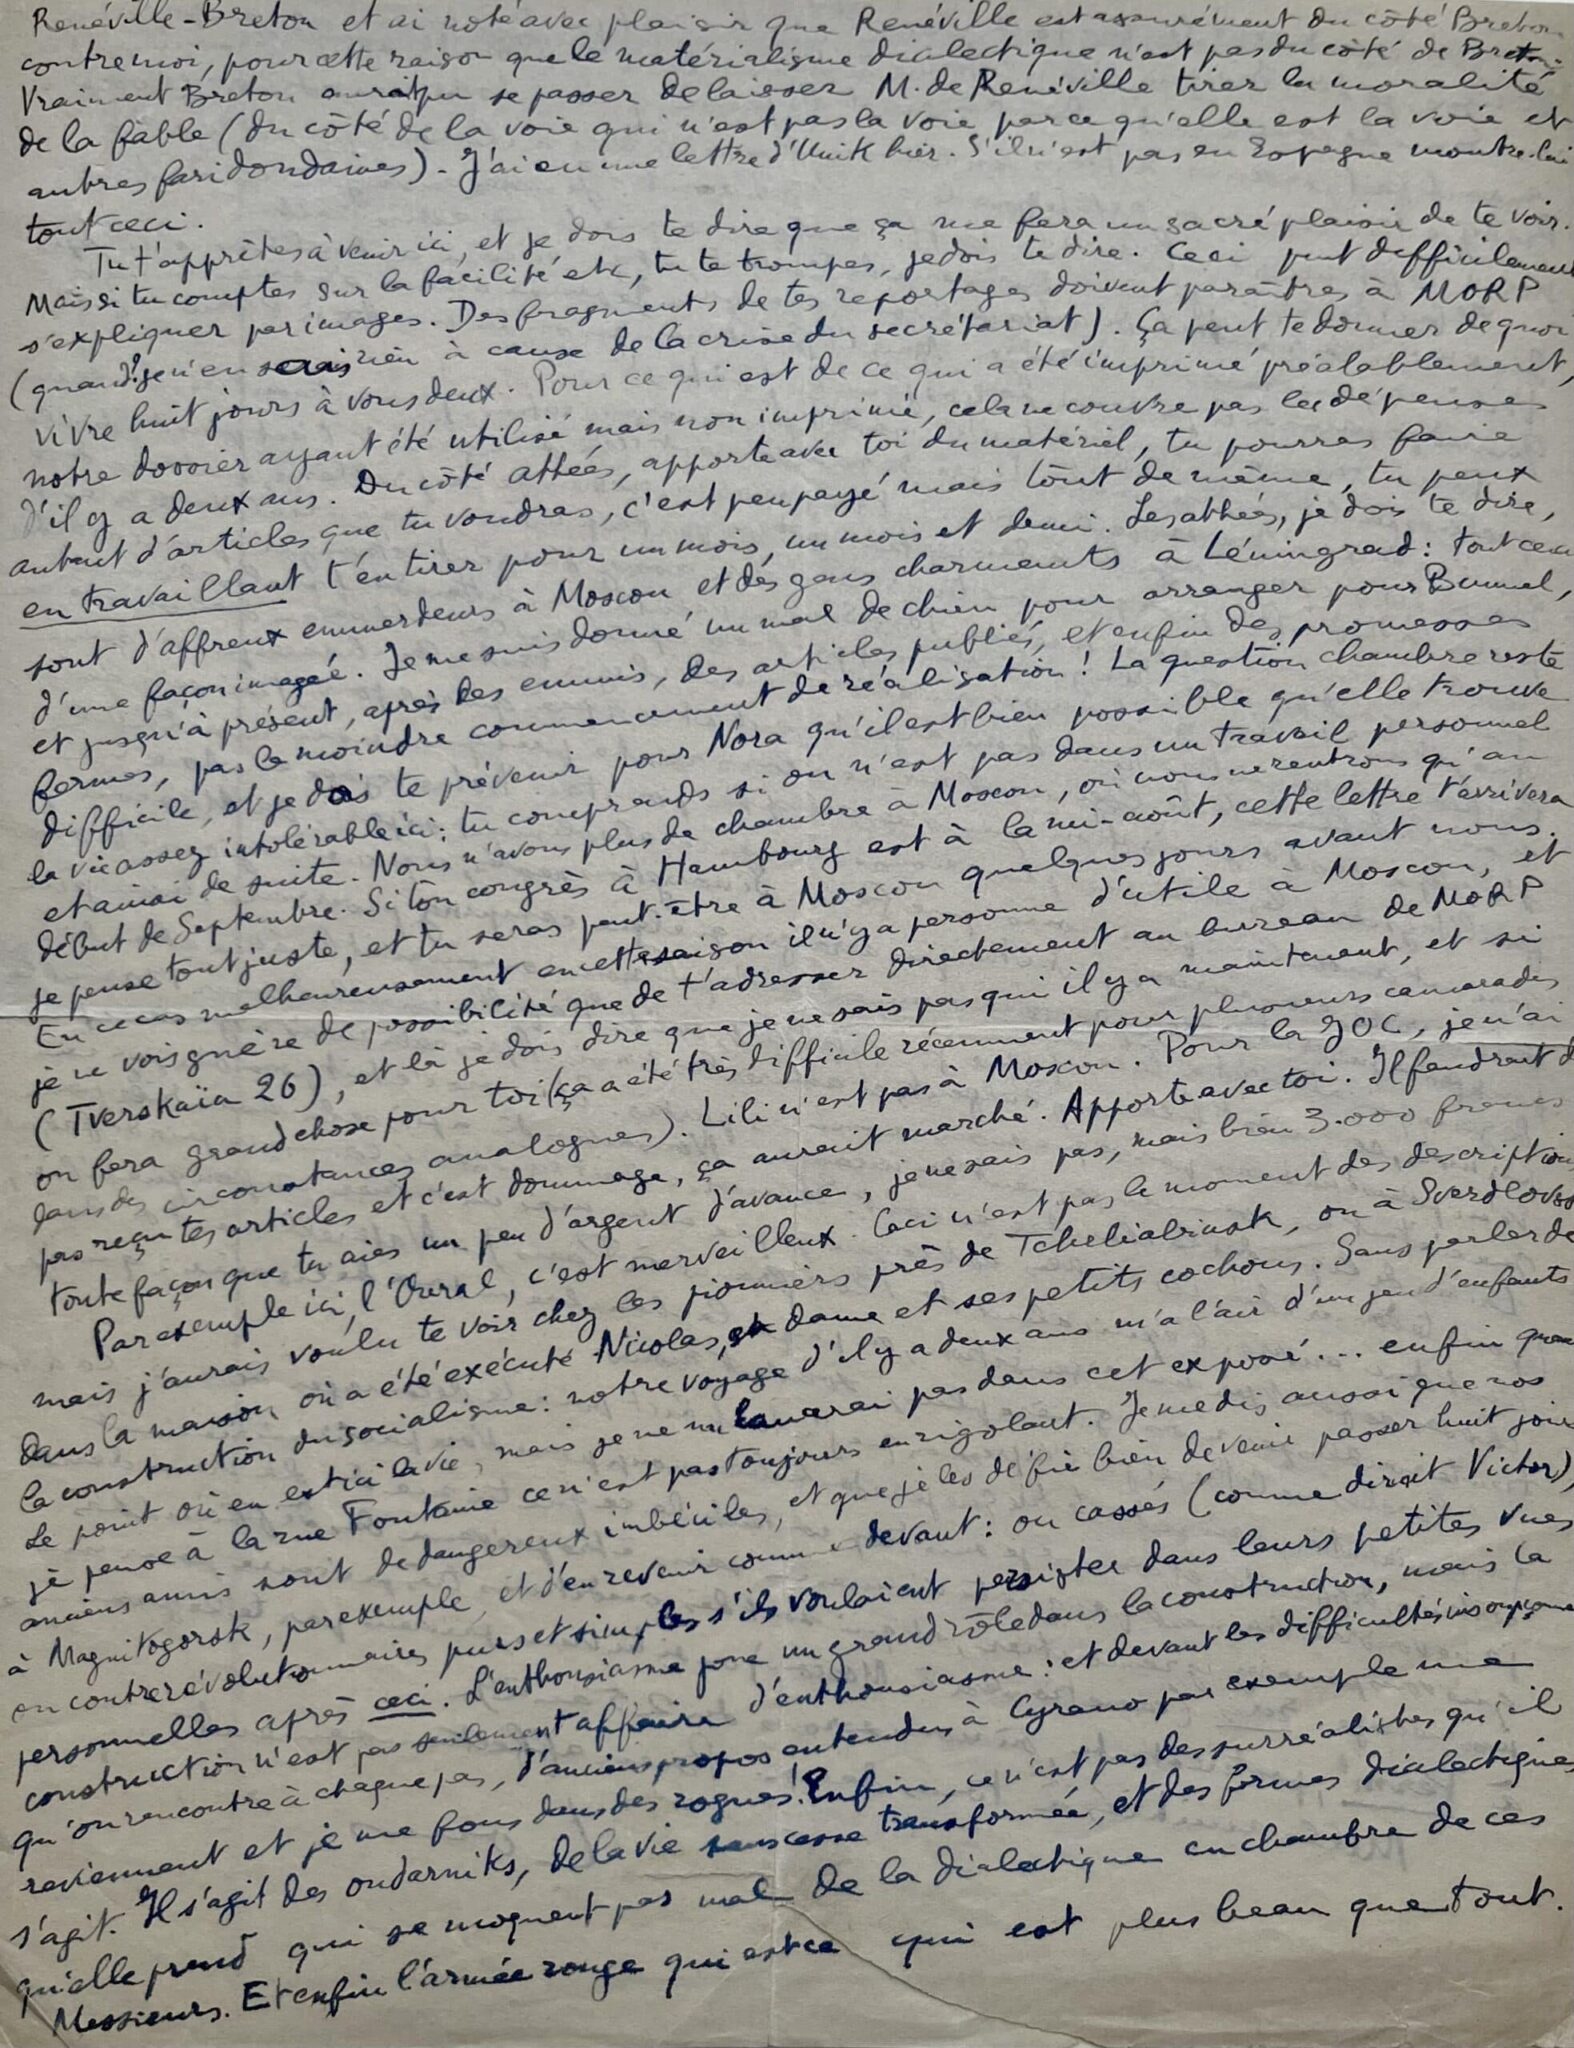 Renéville-Breton et ai noté avec plaisir que Renéville est assurément du côté Breton
contre moi, pour cette raison que le matérialisme dialectique n'est pas du côté de Breton.
Vraiment Breton aurait pu se passer de laisser M. de Renéville tirer la moralité
de la fable (du côté de la voie qui n'est pas la voie parce qu'elle est la voie et
autres faridondaines). J'ai eu une lettre d'Unik hier. S'il n'est pas en Espagne montre-lui
tout ceci.
Tu t'apprêtes à venir ici, et je dois te dire que ça me fera un sacré plaisir de te voir.
Mais si tu comptes sur la facilité etc, tu te trompes, je dois te dire. Ceci peut difficilement
s'expliquer par images. Des fragments de tes reportages doivent paraître à MORP
(quand? je n'en sais rien à cause de la crise du secrétariat). Ça peut te donner de quoi
vivre huit jours à vous deux. Pour ce qui est de ce qui a été imprimé préalablement,
notre dossier ayant été utilisé mais non imprimé, cela ne couvre pas les dépenses
d'il y a deux ans. Du côté athées, apporte avec toi du matériel, tu pourras faire
autant d'articles que tu voudras, c'est peu payé mais tout de même, tu peux
en travaillant t'en tirer pour un mois, un mois et demi. Les athées, je dois te dire,
sont d'affreux emmerdeurs à Moscou et des gens charmants à Léningrad: tout ceci
d'une façon imagée. Je me suis donné un mal de chien pour arranger pour Bunuel,
et jusqu'à présent, après des ennuis, des articles publiés, et enfin des promesses
fermes, pas le moindre commencement de réalisation! La question chambre reste
difficile, et je dois te prévenir pour Nora qu'il est bien possible qu'elle trouve
la vie assez intolérable ici: tu comprends si on n'est pas dans un travail personnel
et ainsi de suite. Nous n'avons plus de chambre à Moscou, où nous ne rentrons qu'au
début de Septembre. Si ton congrès à Hambourg est à la mi-août, cette lettre t'arrivera
je pense tout juste, et tu seras peut-être à Moscou quelques jours avant nous.
En ce cas malheureusement en cette saison il n'y a personne d'utile à Moscou, et
je ne vois guère de possibilité que de t'adresser directement au bureau de MORP
(Tverskaïa 26), et là je dois dire que je ne sais pas qui il y a maintenant, et si
on fera grand chose pour toi (ça a été très difficile récemment pour plusieurs camarades
dans des circonstances analogues). Lili n'est pas à Moscou. Pour la JOC, je n'ai
pas reçu tes articles et c'est dommage, ça aurait marché. Apporte avec toi. Il faudrait de
toute façon que tu aies un peu d'argent d'avance, je ne sais pas, mais bien 3.000 francs
Par exemple ici, l'Oural, c'est merveilleux. Ceci n'est pas le moment des descriptions
mais j'aurais voulu te voir chez les pionniers près de Tcheliabinsk, ou à Sverdlovsk
dans la maison où a été exécuté Nicolas, sa dame et ses petits cochons. Sans parler de
la construction du socialisme: notre voyage d'il y a deux ans m'a l'air d'un jeu d'enfants
Le point où en est ici la vie, mais je ne me lancerai pas dans cet exposé... enfin quand
je pense à la rue Fontaine ce n'est pas toujours en rigolant. Je me dis aussi que nos
anciens amis sont de dangereux imbéciles, et que je les défie bien de venir passer huit jours
à Magnitogorsk, par exemple, et d'en revenir comme devant: ou cassés (comme dirait Victor),
ou contrerévolutionnaires purs et simples s'ils voulaient persister dans leurs petites vues
personnelles après ceci. L'enthousiasme joue un grand rôle dans la construction, mais la
construction n'est pas seulement affaire d'enthousiasme: et devant les difficultés insoupçonnées
qu'on rencontre à chaque pas, d'anciens propos entendus à Cyrano par exemple me
reviennent et je me fous dans des rognes! Enfin, ce n'est pas des surréalistes qu'il
s'agit. Il s'agit des oudarniks, de la vie sans cesse transformée, et des formes dialectiques
qu'elle prend qui se moquent pas mal de la dialectique en chambre de ces
Messieurs. Et enfin l'armée rouge qui est ce qui est plus beau que tout.